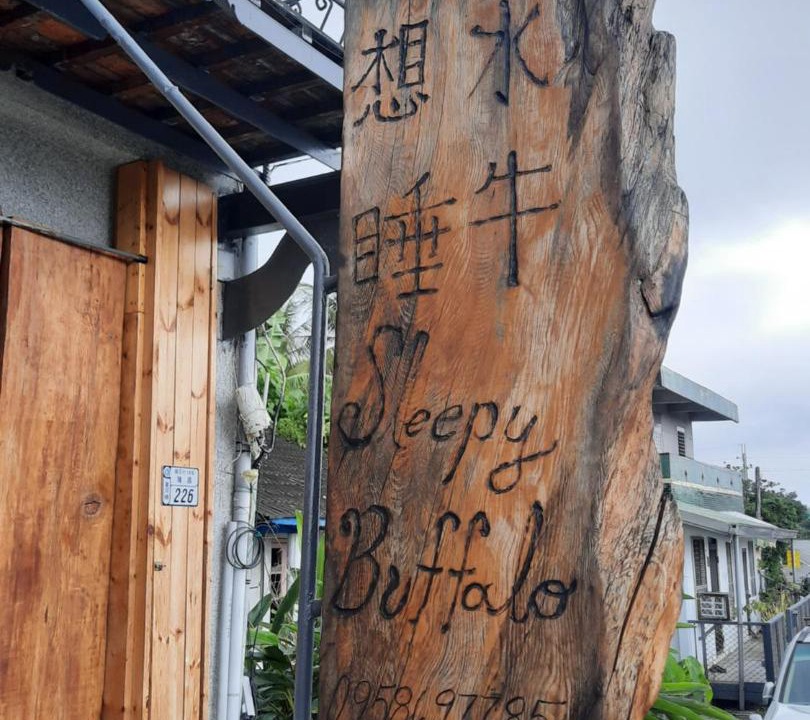 水牛
想睡
Sleepy
Buffalo
0958697785
226